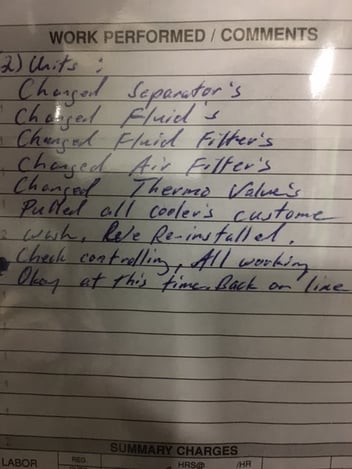 WORK PERFORMED / COMMENTS
2) Units :
Changed Separator's
Changed Fluid's
Changed Fluid Filter's
Changed Air Filter's
Changed Thermo Value's
Pulled all cooler's custome
wash, Re-installed.
Check controlling, All working
Okay at this time. Back on line
SUMMARY CHARGES
LABOR REG. HRS@ /HR